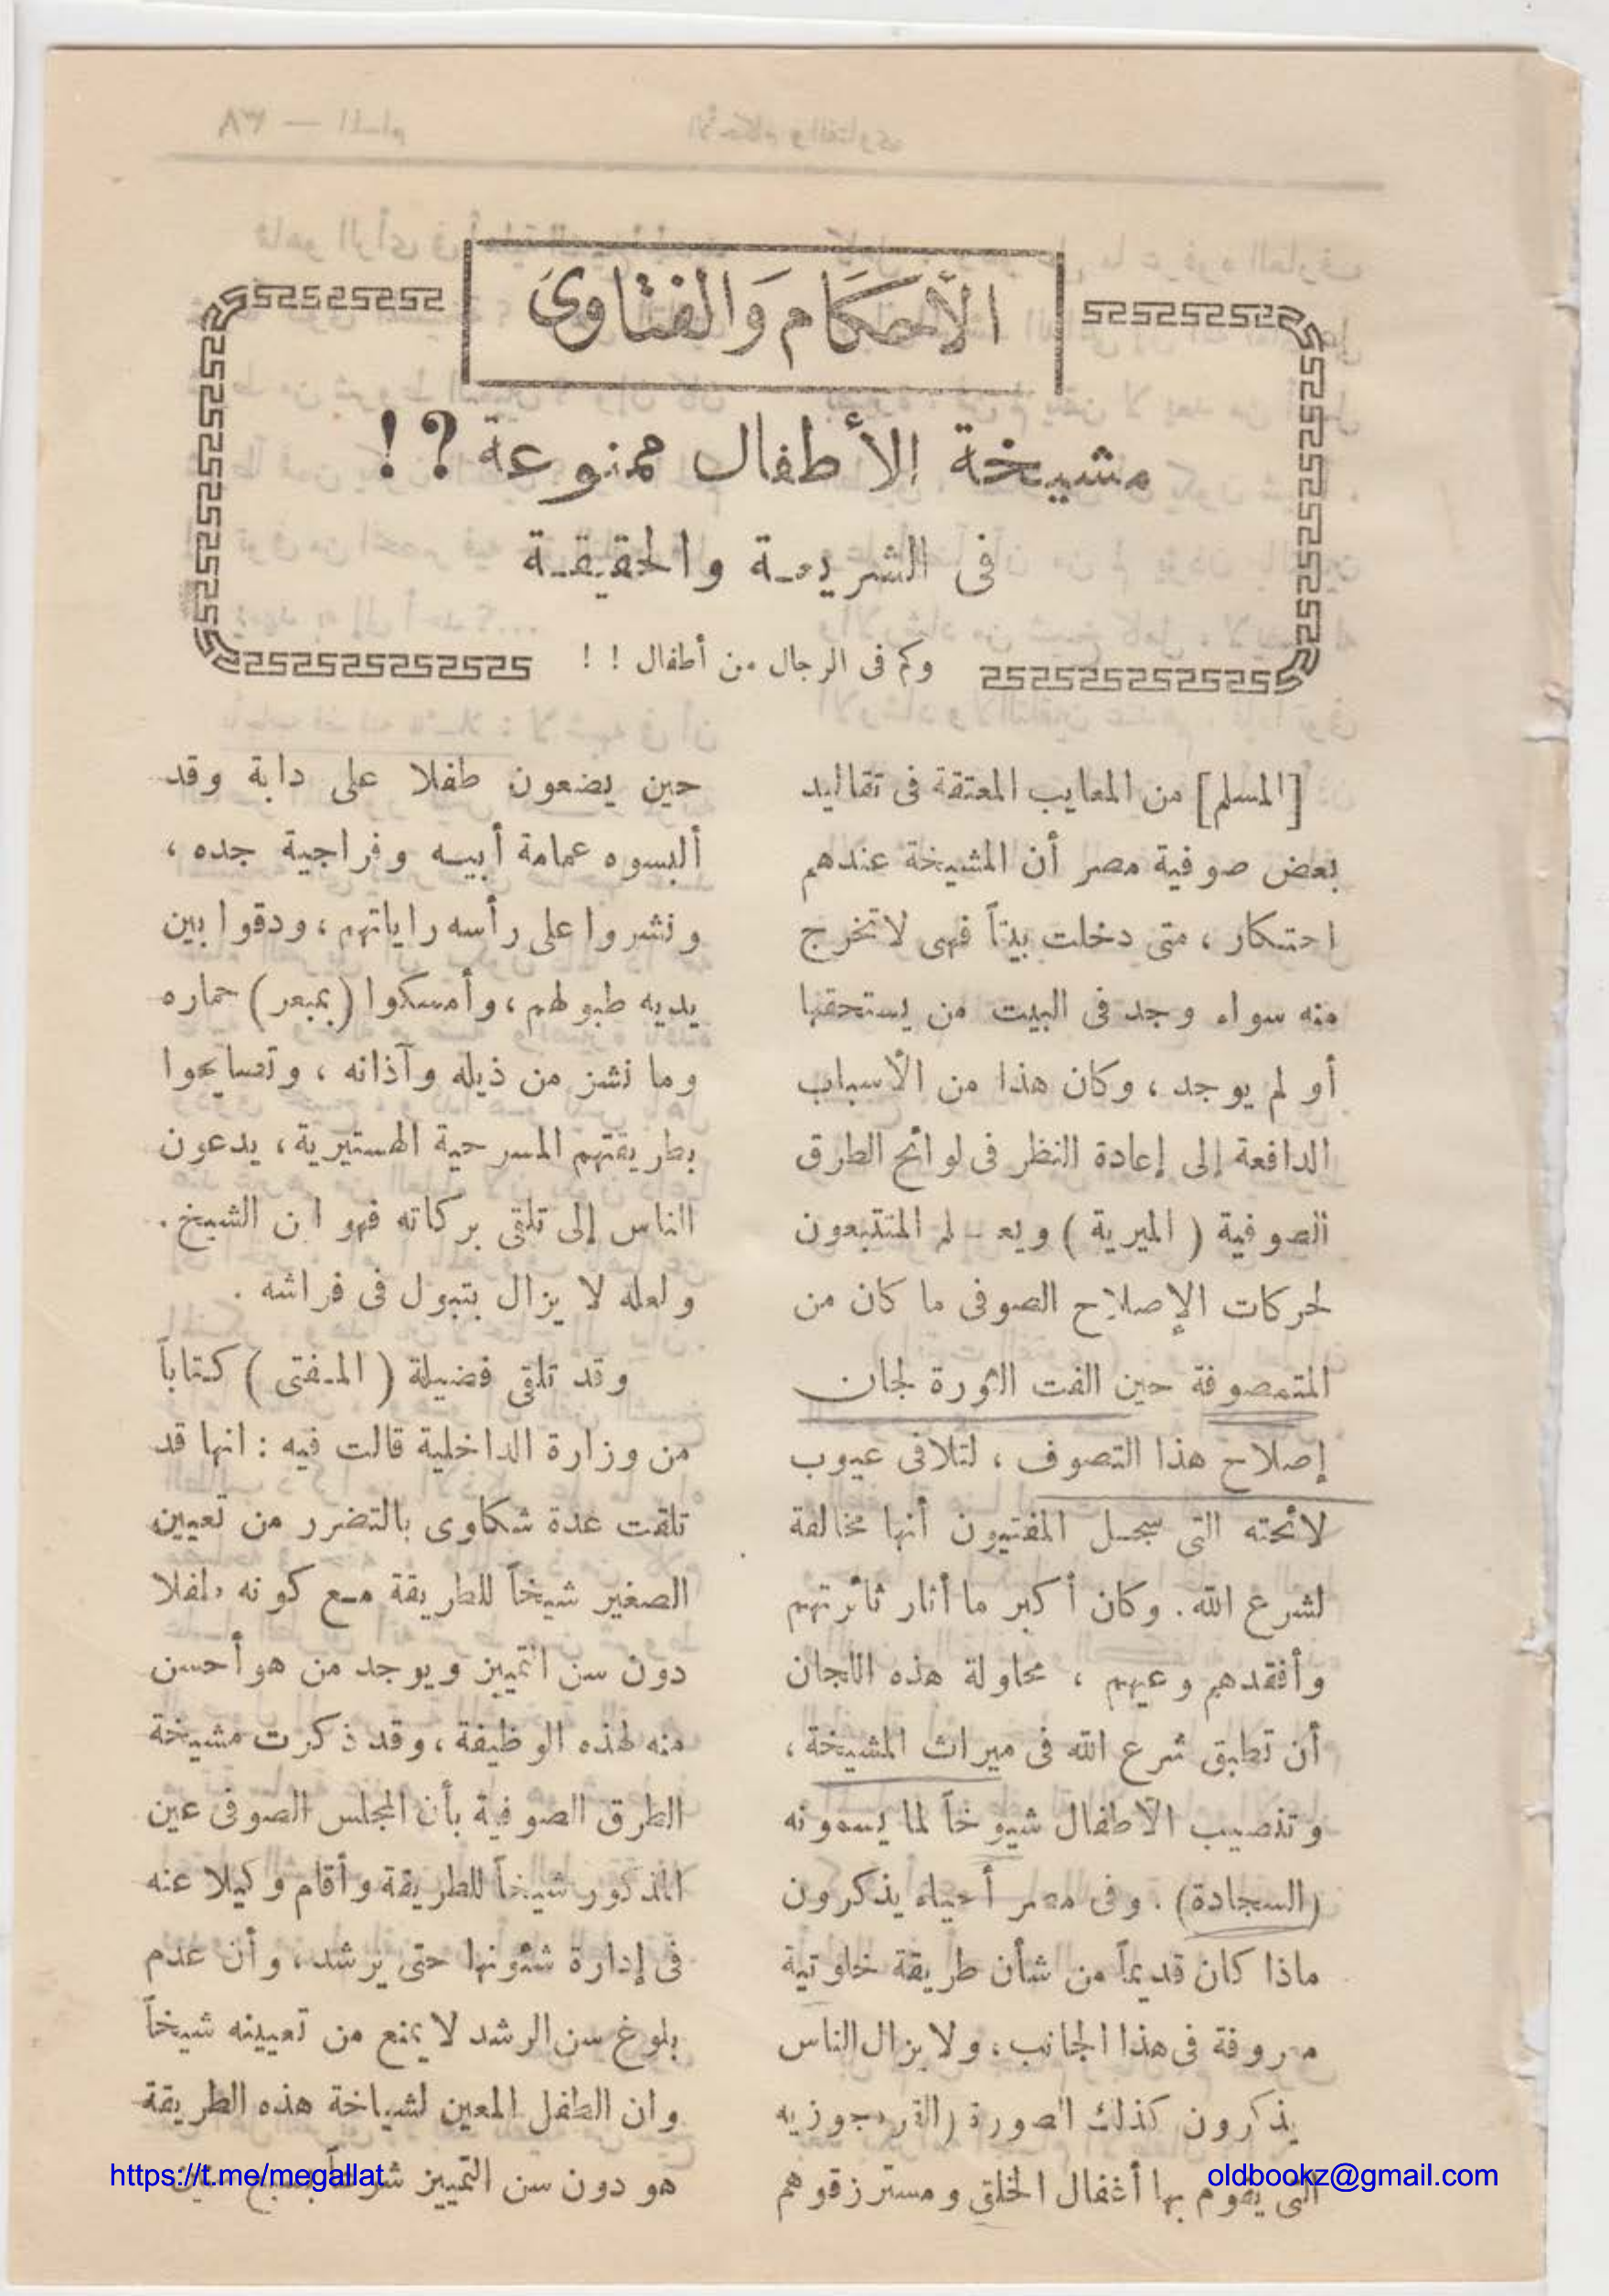 الأحكام والفتاوى
مشيخة الأطفال ممنوعة ؟ !
فى الشريعـة والحقيقـة
وكم فى الرجال من أطفال ! !
[المسلم] من المعايب المعتقة فى تقاليد
بعض صوفية مصر أن المشيخة عندهم
احتكار ، متى دخلت بيتاً فهى لاتخرج
منه سواء وجد فى البيت من يستحقها
أو لم يوجد ، وكان هذا من الأسباب
الدافعة إلى إعادة النظر فى لوائح الطرق
الصوفية ( الميرية ) ويعـلم المتتبعون
لحركات الإصلاح الصوفى ما كان من
المتمصوفة حين الفت الثورة لجان
إصلاح هذا التصوف ، لتلافى عيوب
لائحته التى سجـل المفتيون أنها مخالفة
لشرع الله . وكان أكبر ما أثار ثائرتهم
وأفقدهم وعيهم ، محاولة هذه اللجان
أن تطبق شرع الله فى ميراث المشيخة ،
وتنصيب الأطفال شيوخاً لما يسمونه
(السجادة) . وفى مصر أحياء يذكرون
ماذا كان قديماً من شأن طريقة خلوتية
معروفة فى هذا الجانب ، ولا يزال الناس
يذكرون كذلك الصورة (القرهجوزيه
التى يقوم بها أغفال الخلق ومسترزقوهم
حين يضعون طفلا على دابة وقد
ألبسوه عمامة أبيـه وفراجية جده ،
ونشروا على رأسه راياتهم ، ودقوا بين
يديه طبولهم ، وأمسكوا (بمبعر) حماره
وما نشز من ذيله وآذانه ، وتصايحوا
بطريقتهم المسرحية الهستيرية ، يدعون
الناس إلى تلقى بركاته فهو ابن الشيخ .
ولعله لا يزال يتبول فى فراشه .
وقد تلقى فضيلة ( المـفتى ) كـتاباً
من وزارة الداخلية قالت فيه : انها قد
تلقت عدة شكاوى بالتضرر من تعيين
الصغير شيخاً للطريقة مـع كونه طفلا
دون سن التمييز ويوجد من هو أحسن
منه لهذه الوظيفة ، وقد ذكرت مشيخة
الطرق الصوفية بأن المجلس الصوفى عين
المذكور شيخاً للطريقة وأقام وكيلا عنه
فى إدارة شئونها حتى يرشد ، وأن عدم
بلوغ سن الرشد لا يمنع من تعيينه شيخاً
وان الطفل المعين لشياخة هذه الطريقة
هو دون سن التمييز شرعاً
https://t.me/megallat
oldbookz@gmail.com